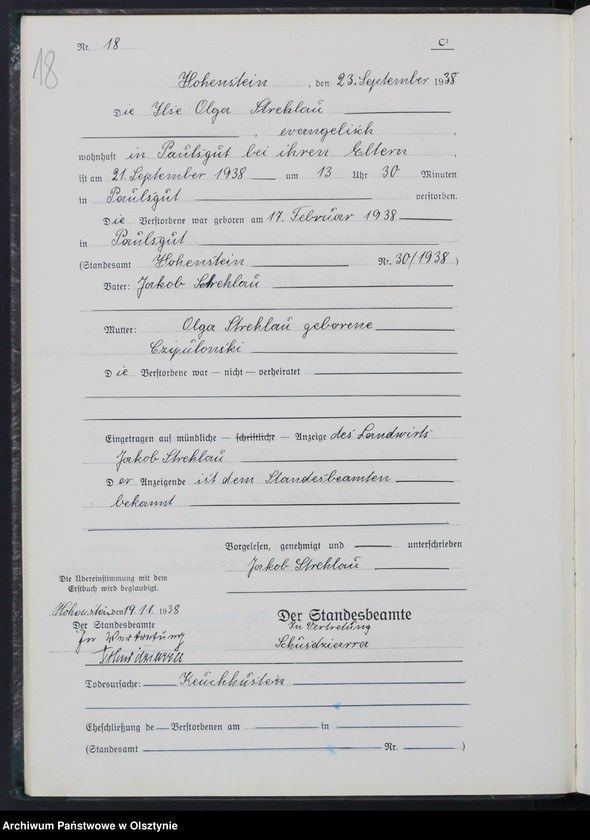 Nr. 18
C¹
18
Hohenstein, den 23. September 1938
Die Ilse Olga Strehlau
, evangelisch,
wohnhaft in Paulsgut bei ihren Eltern,
ist am 21. September 1938 um 13 Uhr 30 Minuten
in Paulsgut verstorben.
Die Verstorbene war geboren am 17. Februar 1938
in Paulsgut
(Standesamt Hohenstein Nr. 30/1938)
Vater: Jakob Strehlau
Mutter: Olga Strehlau geborene
Czipulonski
Die Verstorbene war — nicht — verheiratet
Eingetragen auf mündliche — schriftliche — Anzeige des Landwirts
Jakob Strehlau
Der Anzeigende ist dem Standesbeamten
bekannt
Vorgelesen, genehmigt und unterschrieben
Jakob Strehlau
Die Übereinstimmung mit dem
Erstbuch wird beglaubigt.
Hohenstein, den 19.11. 1938
Der Standesbeamte
In Vertretung
Der Standesbeamte
In Vertretung
Todesursache: Keuchhusten
Eheschließung de Verstorbenen am in
(Standesamt Nr. )
Archiwum Państwowe w Olsztynie